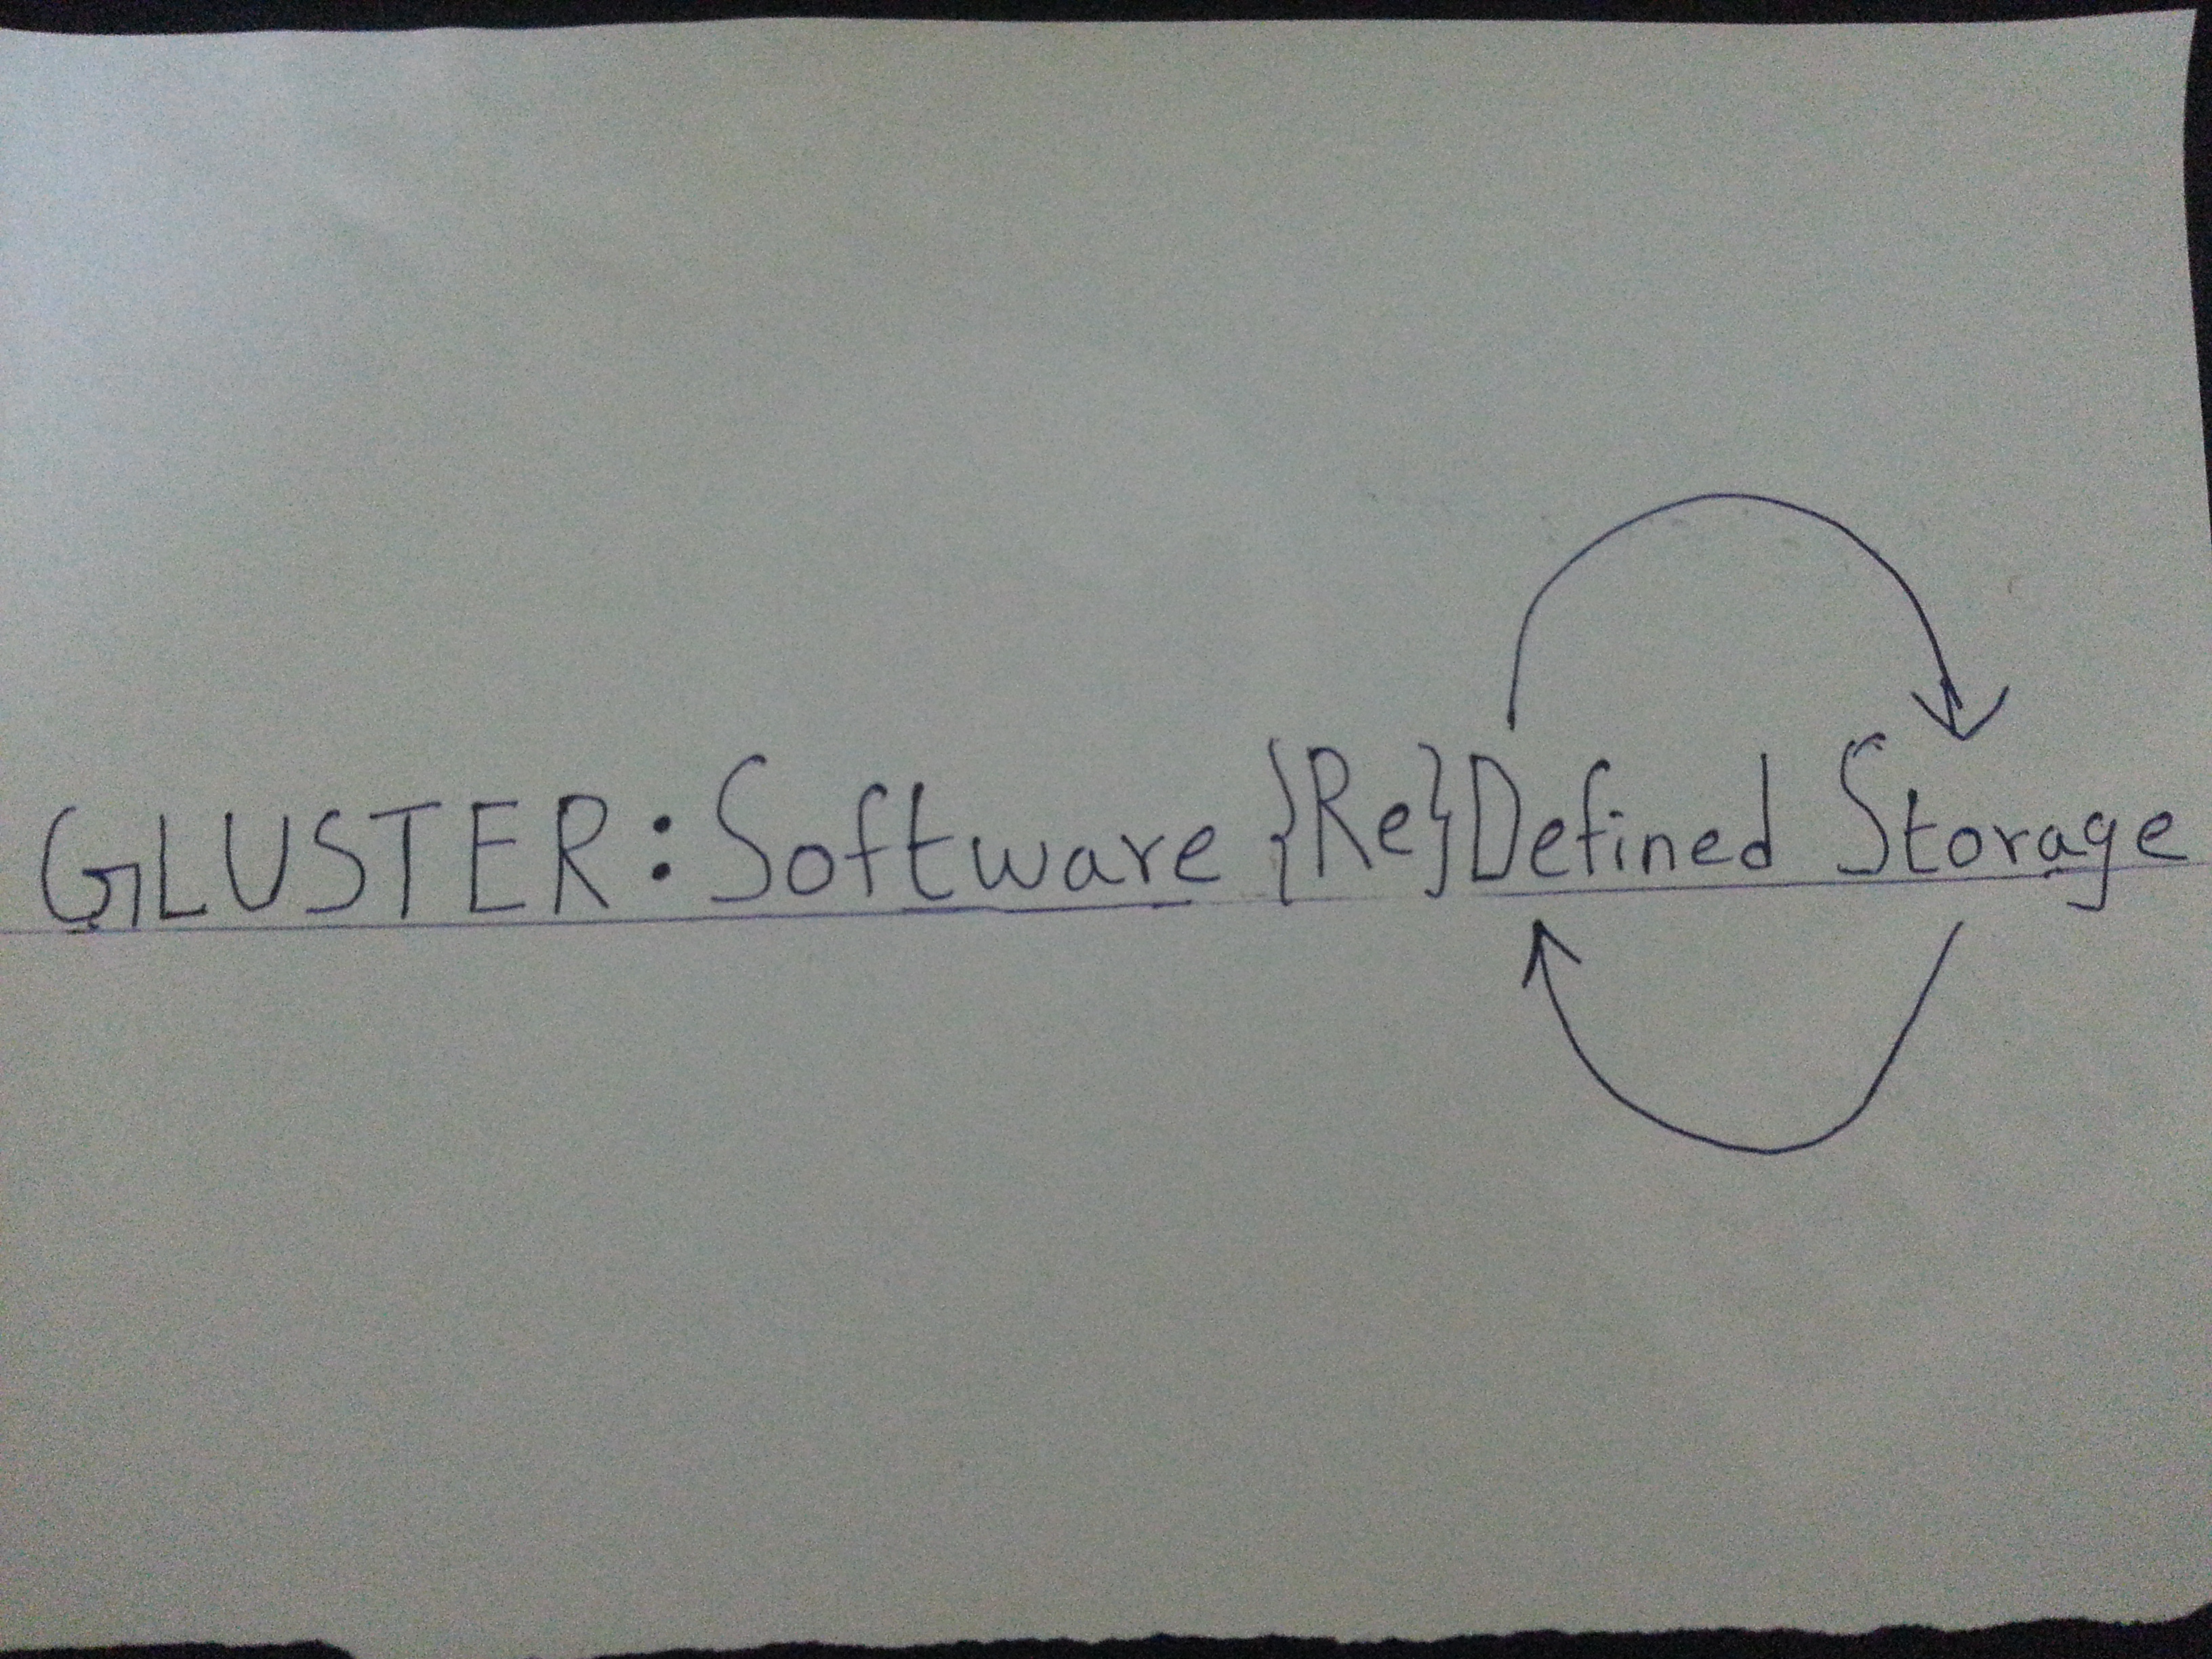 GLUSTER: Software {Re}Defined Storage